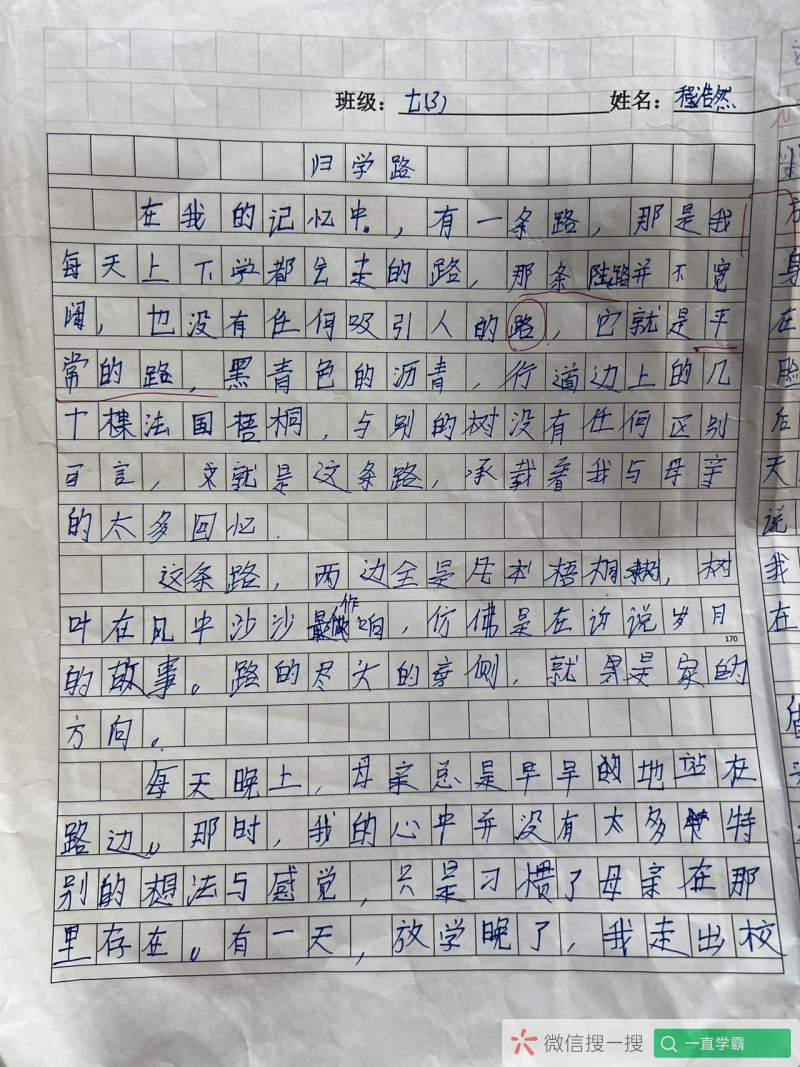 班级：七(3) 姓名：程浩然
归学路
在我的记忆中，有一条路，那是我
每天上下学都会走的路，那条陆路并不宽
阔，也没有任何吸引人的路，它就是平
常的路，黑青色的沥青，行道边上的几
十棵法国梧桐，与别的树没有任何区别
可言，就是这条路，承载着我与母亲
的太多回忆.
这条路，两边全是法 梧桐树，树
叶在风中沙沙作响，仿佛是在访说岁月
170
的故事。路的尽头的旁侧，就是家的
方向。
每天晚上，母亲总是早早的地站在
路边。那时，我的心中并没有太多特
别的想法与感觉，只是习惯了母亲在那
里存在。有一天，放学晚了，我走出校
微信搜一搜 一直学霸